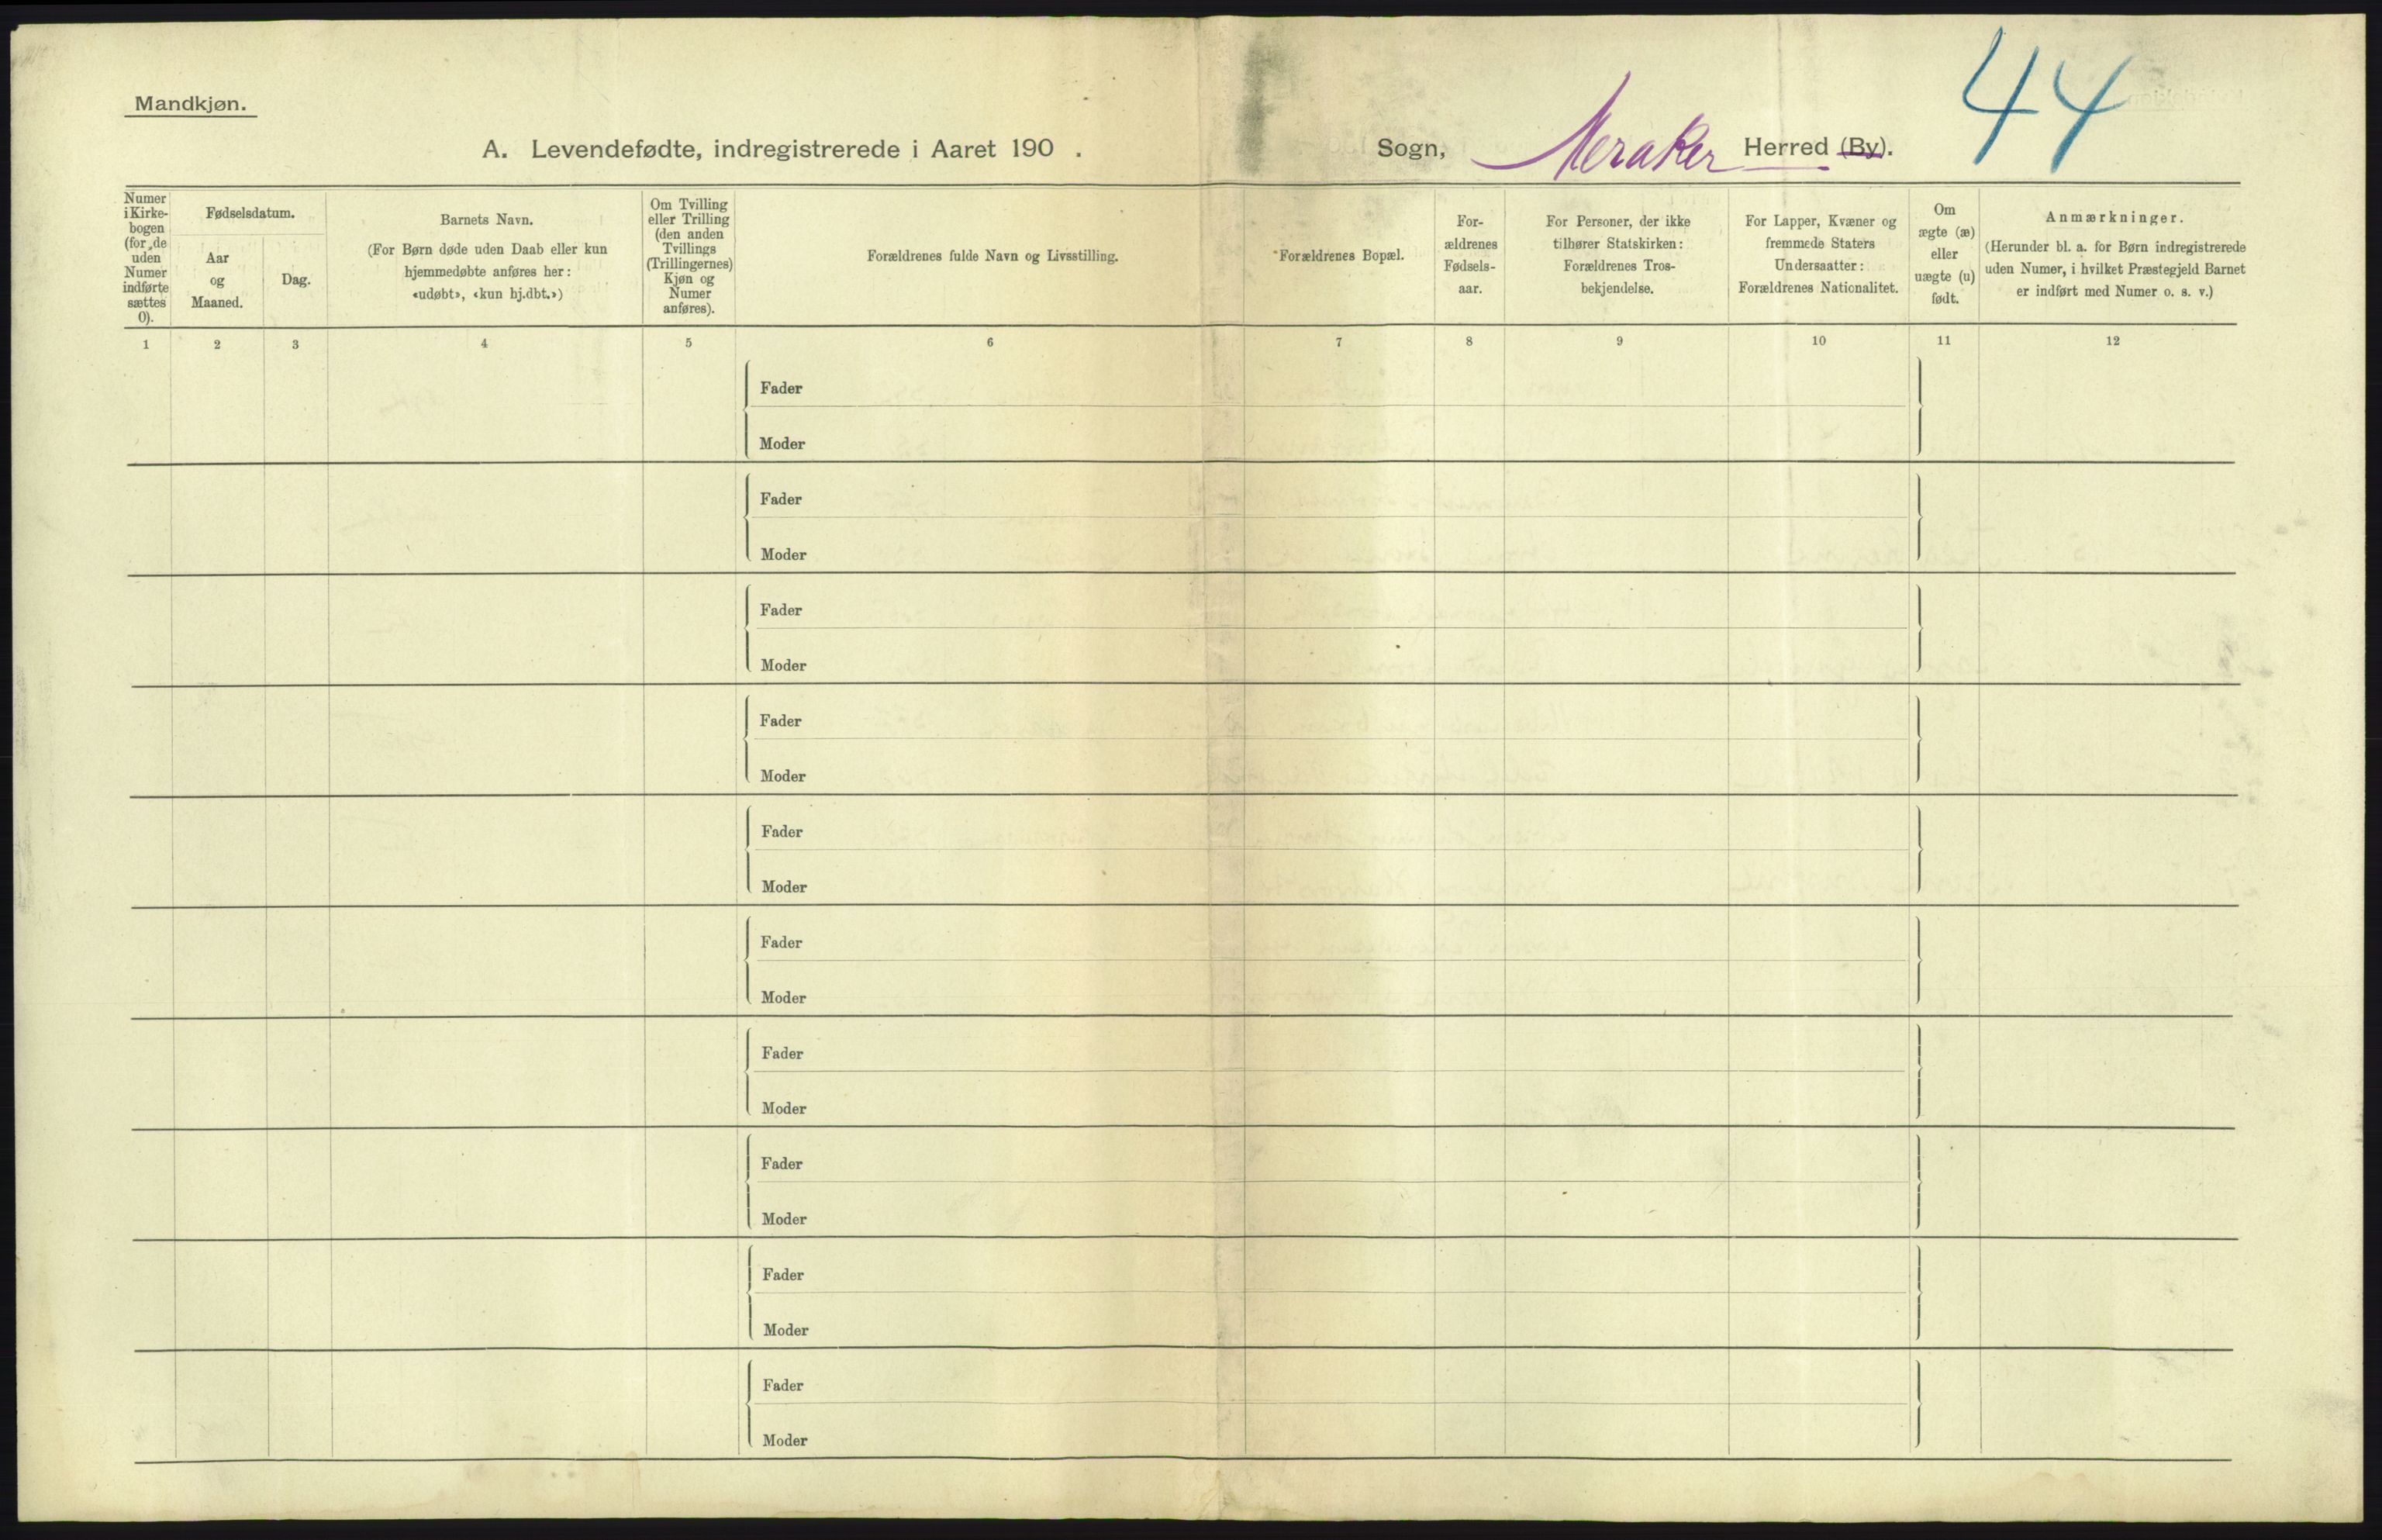 Mandkjøn.
44
A. Levendefødte, indregistrerede i Aaret 190 . Sogn, Meraker Herred (By).
Numer
i Kirke-
bogen
(for de
uden
Numer
indførte
sættes
0).
Fødselsdatum.
Aar
og
Maaned.
Dag.
Barnets Navn.
(For Børn døde uden Daab eller kun
hjemmedøbte anføres her:
«udøbt», «kun hj.dbt.»)
Om Tvilling
eller Trilling
(den anden
Tvillings
(Trillingernes)
Kjøn og
Numer
anføres).
Forældrenes fulde Navn og Livsstilling.
Forældrenes Bopæl.
For-
ældrenes
Fødsels-
aar.
For Personer, der ikke
tilhører Statskirken:
Forældrenes Tros-
bekjendelse.
For Lapper, Kvæner og
fremmede Staters
Undersaatter:
Forældrenes Nationalitet.
Om
ægte (æ)
eller
uægte (u)
født.
Anmærkninger.
(Herunder bl. a. for Børn indregistrerede
uden Numer, i hvilket Præstegjeld Barnet
er indført med Numer o. s. v.)
1 2 3 4 5 6 7 8 9 10 11 12
Fader
Moder
Fader
Moder
Fader
Moder
Fader
Moder
Fader
Moder
Fader
Moder
Fader
Moder
Fader
Moder
Fader
Moder
Fader
Moder